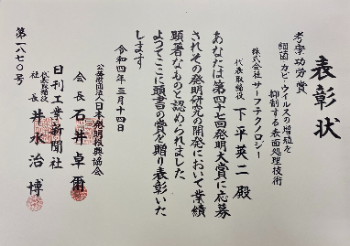 表彰状
考案功労賞
細菌・カビ・ウイルスの増殖を
抑制する表面処理技術
株式会社サーフテクノロジー
代表取締役 下平英二殿
あなたは第四十七回発明大賞に応募
されその発明研究の開発において業績
顕著なものと認められました
よってここに頭書の賞を贈り表彰いた
します
令和四年三月十四日
公益財団法人日本発明振興協会
会長 石井卓爾
日刊工業新聞社
社長 井水治博
第一八七〇号